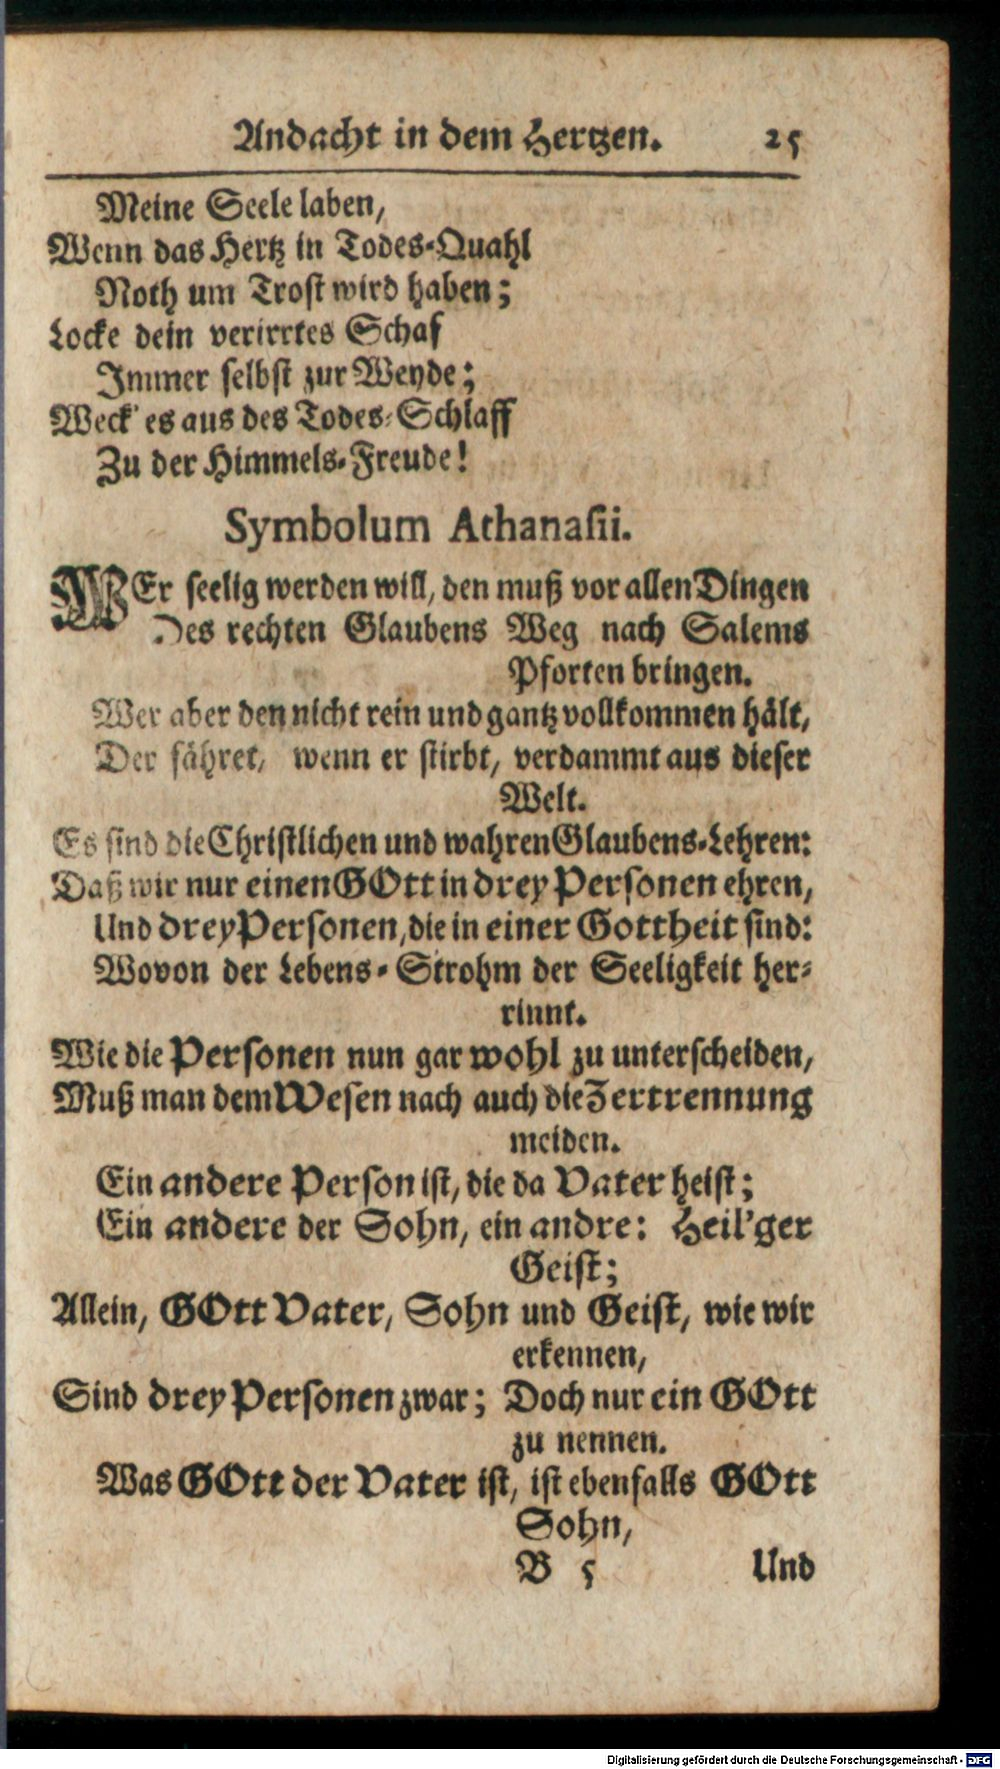 Andacht in dem Hertzen. 25
Meine Seele laben,
Wenn das Hertz in Todes-Quahl
Noth um Trost wird haben;
Locke dein verirrtes Schaf
Immer selbst zur Weyde;
Weck' es aus des Todes-Schlaff
Zu der Himmels-Freude!
Symbolum Athanasii.
WEr seelig werden will, den muß vor allen Dingen
Des rechten Glaubens Weg nach Salems
Pforten bringen.
Wer aber den nicht rein und gantz vollkommen hält,
Der fähret, wenn er stirbt, verdammt aus dieser
Welt.
Es sind die Christlichen und wahren Glaubens-Lehren:
Daß wir nur einen GOtt in drey Personen ehren,
Und drey Personen, die in einer Gottheit sind:
Wovon der Lebens-Strohm der Seeligkeit her-
rinnt.
Wie die Personen nun gar wohl zu unterscheiden,
Muß man dem Wesen nach auch die Zertrennung
meiden.
Ein andere Person ist, die da Vater heist;
Ein andere der Sohn, ein andre: Heil'ger
Geist;
Allein, GOtt Vater, Sohn und Geist, wie wir
erkennen,
Sind drey Personen zwar; Doch nur ein GOtt
zu nennen.
Was GOtt der Vater ist, ist ebenfalls GOtt
Sohn,
B 5 Und
Digitalisierung gefördert durch die Deutsche Forschungsgemeinschaft - DFG